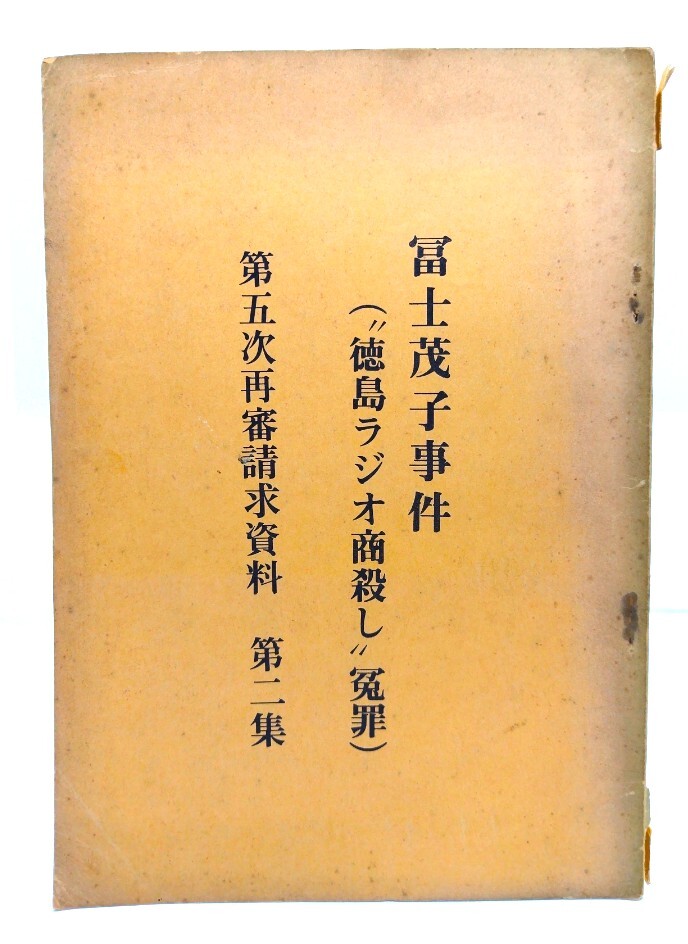 冨士茂子事件
(〝徳島ラジオ商殺し〟冤罪)
第五次再審請求資料　第二集